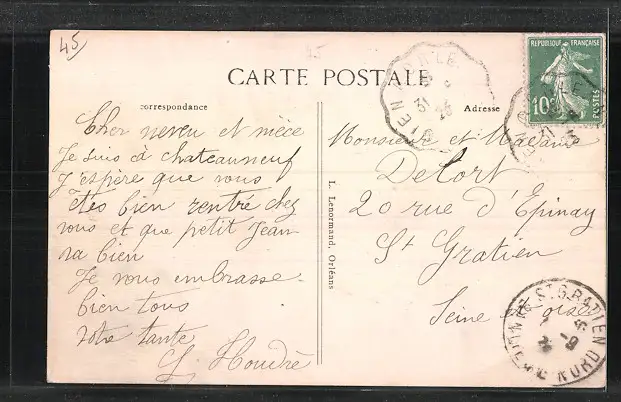 45
CARTE POSTALE
correspondance
Adresse
REPUBLIQUE FRANÇAISE
10c
POSTES
Cher neveu et nièce
Je suis à chateauneuf
J'espère que vous
êtes bien rentré chez
vous et que petit Jean
va bien
Je vous embrasse
bien tous
votre tante
L. Houdré
L. Lenormand, Orléans
Monsieur et Madame
Delort
20 rue d'Epinay
St Gratien
Seine et oise
GIEN
31
ST GRATIEN